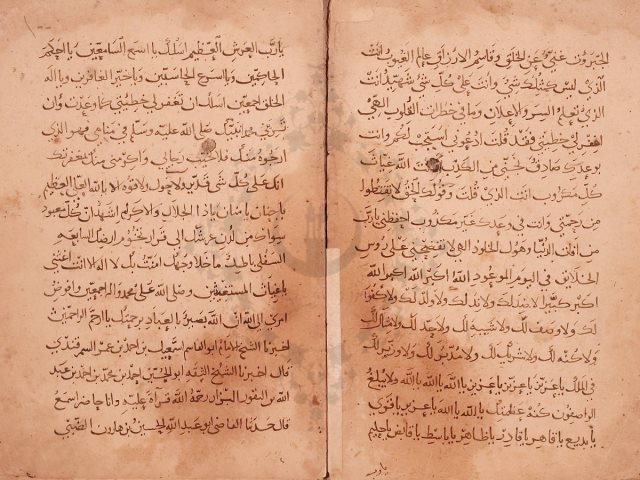 الخبزون غني عن الخلق وقاسم الارزاق عالم الغيوب انت
الذي ليس كمثلك شيء وانت على كل شيء شهيد انت
الذي تعلم السر والاعلان وما في خطرات القلوب الهي
اغفر لي خطيئتي فقد قلت ادعوني استجب لكم وانت
بوعدك صادق نجني من الكذب انت الله غياث
كل مكروب انت الذي قلت وقولك الحق لا تقنطوا
من رحمتي وانت في وعدك غير مكذوب احفظني يا رب
من افات الدنيا وهول اللحود الهي لا تفضحني على روس
الخلايق في اليوم الموعود الله اكبر الله اكبر الله
اكبر كبيرا لا ضد لك ولا ند لك ولا ولد لك ولا كفوا
لك ولا وصف لك ولا شبيه لك ولا حد لك ولا مثال لك
ولا كنه لك ولا شريك لك ولا معين لك ولا وزير لك
في الملك يا عزيز يا عزيز يا عزيز يا الله يا الله يا الله ولا يبلغ
الواصفون كنه عظمتك يا الله يا الله يا عزيز يا قوي
يا بديع يا قاهر يا قادر يا ظاهر يا باسط يا قابض يا حليم
يا رب
يا رب العرش العظيم اسلك يا اسمع السامعين ويا احكم
الحاكمين ويا اسرع الحاسبين ويا خير الغافرين ويا اله
الخلق اجمعين اسلك ان تغفر لي خطيئتي كما وعدت وان
نبيك صلى الله عليه وسلم في منامي فهو الذي
ارجوه منك فلا تخيب رجائي واكرمني منك بمغفرتك
انك على كل شيء قدير ولا حول ولا قوة الا بالله العلي العظيم
يا حنان يا منان يا ذا الجلال والاكرام اشهد ان كل معبود
سواك من لدن عرشك الى قرار تخوم ارضك السابعه
السفلى باطل ما خلا وجهك امنت بك لا اله الا انت اغثني
يا غياث المستغيثين وصلى الله على محمد واله اجمعين وافوض
امري الى الله ان الله بصير بالعباد برحمتك يا ارحم الراحمين
اخبرنا الشيخ الامام ابو القاسم اسمعيل بن احمد بن عمر السمرقندي
قال اخبرنا الشيخ الثقه ابو الحسين احمد بن محمد بن احمد بن عبد
الله بن النقور البزاز رحمه الله قراة عليه وانا حاضر اسمع
قال حدثنا القاضي ابو عبد الله الحسين بن هارون الضبي